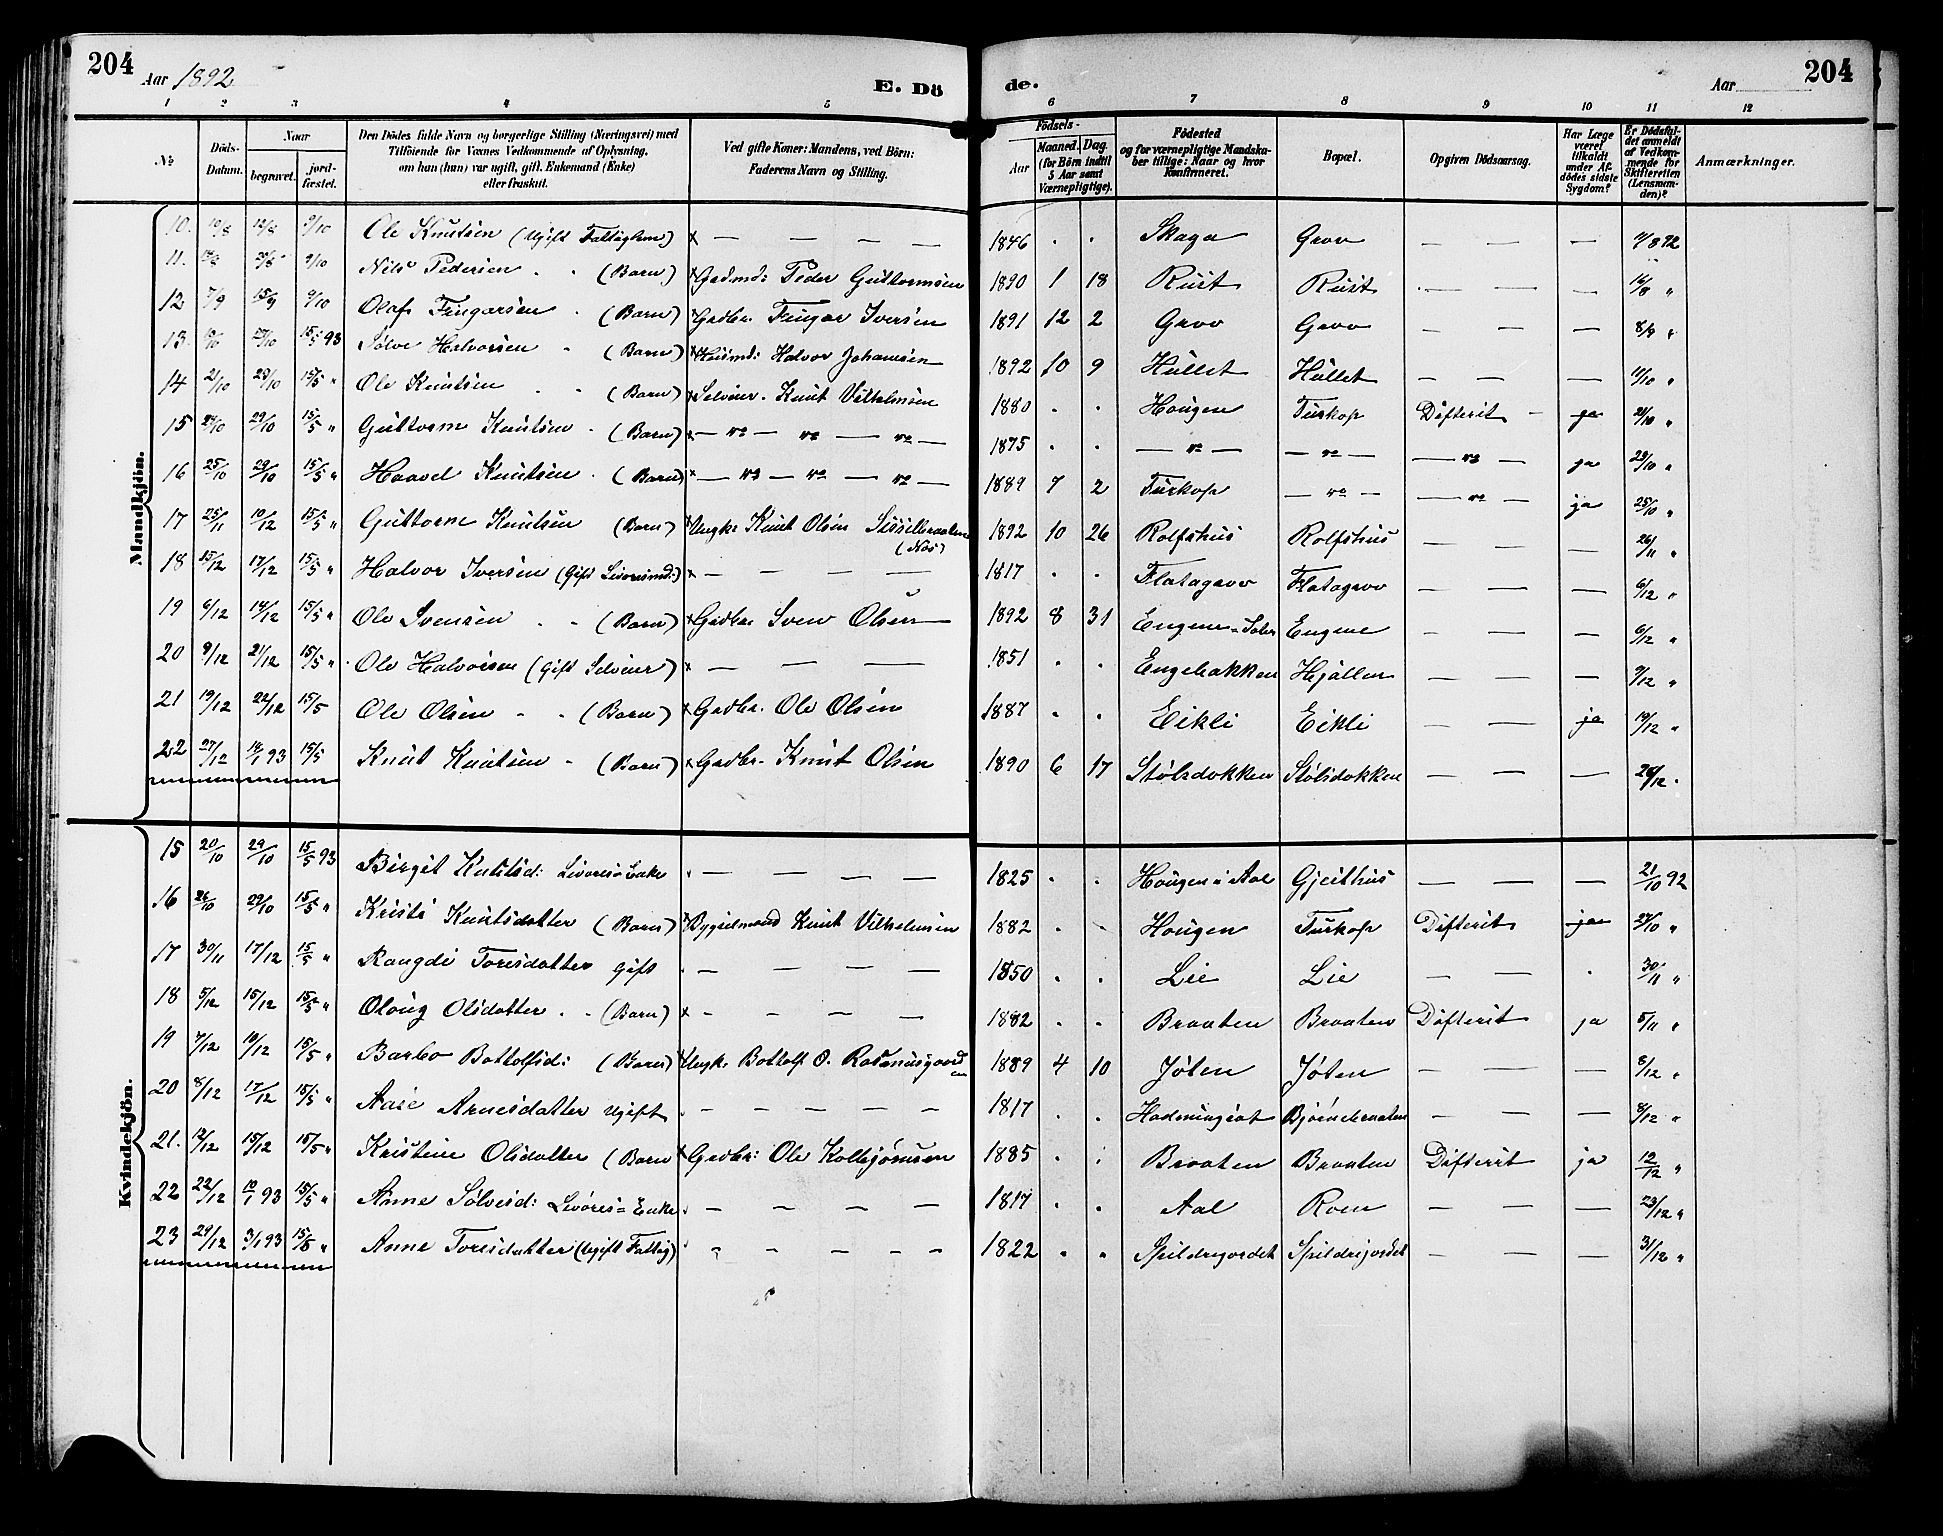 204
Aar 1892
E. Dö
de.
Aar
204
1 2 3 4 5 6 7 8 9 10 11 12
No
Döds-Datum.
Naar
begravet.
jord-fæstet.
Den Dödes fulde Navn og borgerlige Stilling (Næringsvei) med
Tilföiende for Voxnes Vedkommende af Oplysning,
om han (hun) var ugift, gift, Enkemand (Enke)
eller fraskilt.
Ved gifte Koner: Mandens, ved Börn:
Faderens Navn og Stilling.
Födsels-
Aar
Maaned. Dag.
(for Börn indtil
5 Aar samt
Værnepligtige).
Födested
og for værnepligtige Mandska-
ber tillige: Naar og hvor
Konfirmeret.
Bopæl.
Opgiven Dödsaarsag.
Har Læge
været
tilkaldt
under Af-
dödes sidste
Sygdom?
Er Dödsfal-
det anmeldt
af Vedkom-
mende for
Skifteretten
(Lensman-
den)?
Anmærkninger.
Mandkjön.
10. 9/10 Ole Knutsen (Ugift Fattiglem) x — — — — 1846 . . Skaga Grov — — — 11/8 92
11. 9/10 Nils Pedersen . . (Barn) x Gadmd: Peder Guttormsen 1890 1 18 Rust Rust — — — 16/8 "
12 7/9 15/9 9/10 Olaf Fingarsen . (Barn) x Gadbr. Fingar Iversen 1891 12 2 Grov Grov — — — 8/9 "
13. 15/5 93 Sølve Halvorsen . (Barn) x Husmd: Halvor Johannsen 1892 10 9 Hullet Hullet — — — 11/10 "
14 21/10 29/10 15/5 " Ole Knutsen . . (Barn) x Selveier. Knut Vilhelmsen 1880 . . Hougen Turkop Difterit — ja 21/10 "
15 24/10 29/10 15/5 " Guttorm Knutsen . (Barn) x — " — " — " — 1875 . . — " — — " — — " — ja 29/10 "
16 25/10 29/10 15/5 " Haavel Knutsen . (Barn) x — " — " — " — 1889 7 2 Turkop — " — — " — ja 25/10 "
17 25/11 10/12 15/5 " Guttorm Knutsen (Barn) x Ungkr Knut Olsen Sisselbraaten (Nos) 1892 10 26 Rolfshus Rolfshus — — — 26/11 "
18 15/12 17/12 15/5 " Halvor Iversen (Gift Livøresmd:) x — — — — 1817 . . Flatagrov Flatagrov — — — 6/12 "
19 6/12 14/12 15/5 " Ole Svensen . . (Barn) x Gadbr. Sven Olsen 1892 8 31 Engene Engene — — — 6/12 "
20 9/12 21/12 15/5 " Ole Halvorsen (Gift Selveier) x — — — 1851 . . Engebakken Hjallen — — — 9/12 "
21 19/12 22/12 15/5 Ole Olsen . . (Barn) x Gadbr. Ole Olsen 1887 . . Eikli Eikli — — ja 19/12 "
22 27/12 93 15/5 Knut Knutsen . (Barn) x Gadbr. Knut Olsen 1890 6 17 Stølsdokken Stølsdokken — — — 28/12 .
Kvindekjön.
15 20/10 29/10 15/5 93 Birgit Knutsd: Livøres Enke . — — — — 1825 . . Hougen i Aal Gjeithus — — — 21/10 92
16 26/10 29/10 15/5 " Kristi Knutsdatter (Barn) x Bygselmand Knut Vilhelmsen 1882 . . Hougen Turkop Difterit ja 27/10 "
17 30/11 17/12 15/5 " Rangdi Toresdatter Gift . — — — — 1850 . . Lie Lie — — . 30/11 "
18 5/12 15/12 15/5 " Oloug Olsdatter . . (Barn) x — — — — 1882 . . Braaten Braaten Difterit ja 5/11 "
19 7/12 10/12 15/5 " Barbo Bottolfsd: (Barn) x Ungk. Bottolf O. Rasmusgaarden 1889 4 10 Jøten Jøten — — — 8/12 "
20 8/12 17/12 15/5 " Aase Arnesdatter Ugift . — — — — — 1817 . . Bjørnebraaten — — — 8/12 "
21. 12/12 15/12 15/5 " Kristine Olsdatter (Barn x Gadbr: Ole Kolbjørnsen 1885 . . Braaten Braaten Difterit ja 12/12 "
22 22/12 10/1 93 15/5 " Anne Sølvesd: Livøres= Enke . — — — — 1817 . . Aal Roen — — — 23/12 "
23 29/12 3/1 93 15/5 " Anne Toresdatter (Ugift Fattig) . — — — — 1822 . . Spildregjordet Spildregjordet — — — 31/12 "